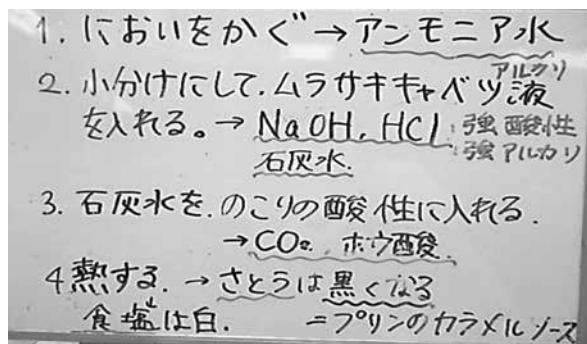 1. においをかぐ→アンモニア水
2. 小分けにして.ムラサキキャベツ液
アルカリ
を入れる。→ NaOH, HCl :強酸性
石灰水. :強アルカリ
3. 石灰水を.のこりの酸性に入れる.
→CO₂. ホウ酸.
4 熱する. → さとうは黒くなる
食塩は白. =プリンのカラメルソース